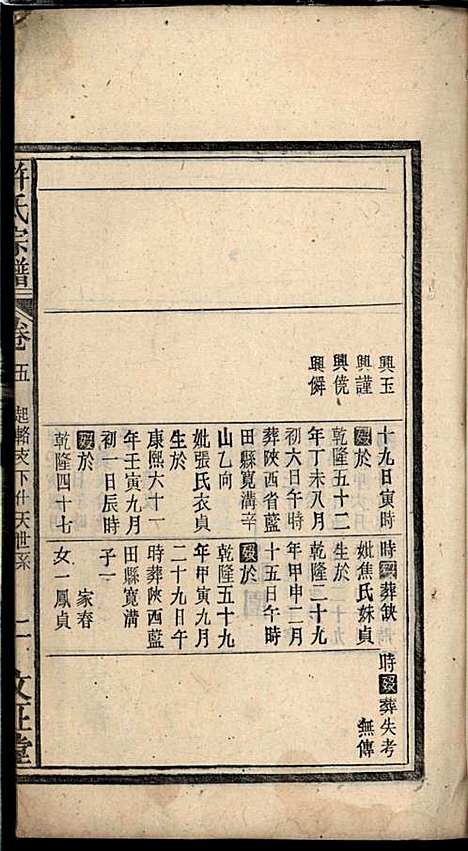 興玉
興謹
興僥
興僻
十九日寅時
歿於
乾隆五十二
年丁未八月
初六日午時
葬陝西省藍
田縣寬溝辛
山乙向
妣張氏衣貞
生於
康熙六十一
年壬寅九月
初一日辰時
歿於
乾隆四十七
時歿葬缺
妣焦氏妹貞
生於
乾隆二十九
年甲申二月
十五日午時
歿於
乾隆五十九
年甲寅九月
二十九日午
時葬陝西藍
田縣寬溝
子一
家春
女一鳳貞
時歿葬失考
無傳
許氏宗譜
卷五
下仕天世系
二
文正堂